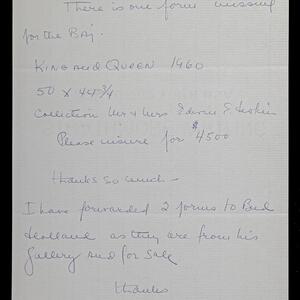 There is one form missing
for the Baj.
KING and QUEEN 1960
50 x 44 3/4
Collection Mr & Mrs Edwin E.
Please insure for $4500
thanks so much –
I have forwarded 2 forms to Bud
Holland as they are from his
Gallery and for sale
thanks